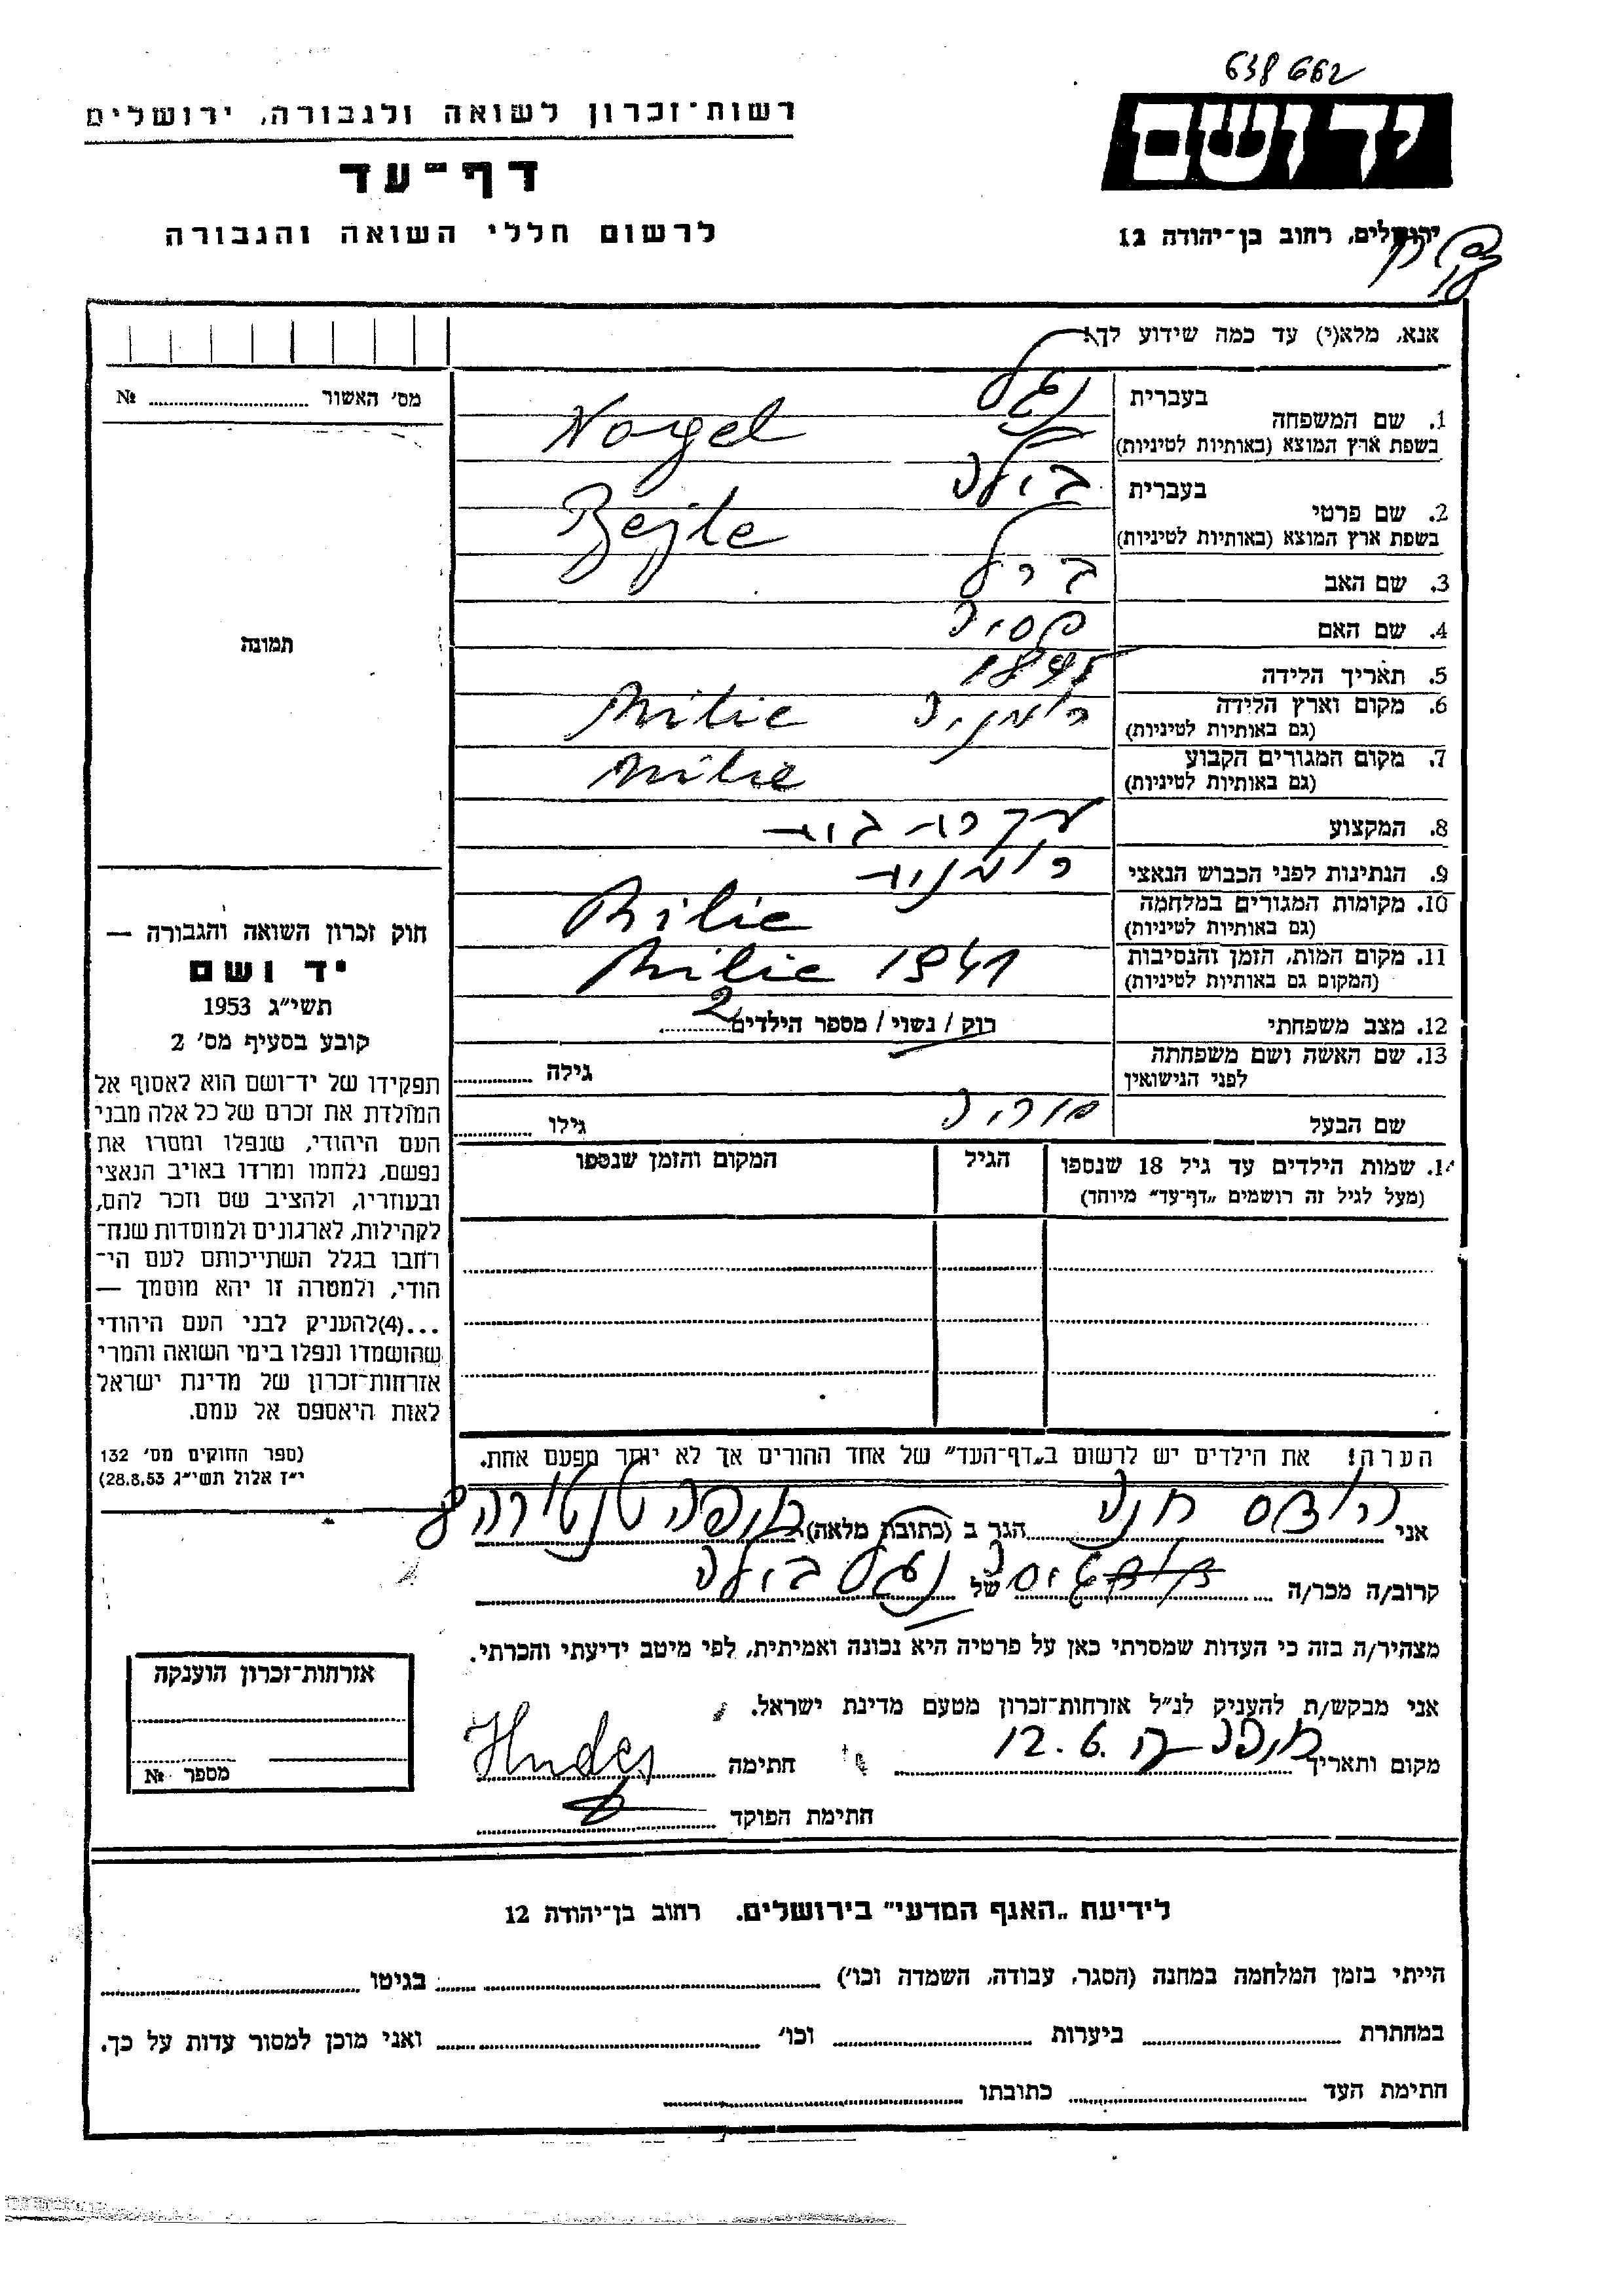 638662
רשות־זכרון לשואה ולגבורה, ירושלים
דף־עד
לרשום חללי השואה והגבורה
יד ושם
ירושלים, רחוב בן־יהודה 12
אנא, מלא(י) עד כמה שידוע לך!
מס' האשור № 
תמונה
1. שם המשפחה בעברית נגל
בשפת ארץ המוצא (באותיות לטיניות) Nagel
2. שם פרטי בעברית בילה
בשפת ארץ המוצא (באותיות לטיניות) Bejle
3. שם האב ברל
4. שם האם פסיה
5. תאריך הלידה 1895
6. מקום וארץ הלידה רומניה Milie
(גם באותיות לטיניות)
7. מקום המגורים הקבוע Milie
(גם באותיות לטיניות)
8. המקצוע עקרת בית
9. הנתינות לפני הכבוש הנאצי רומנית
10. מקומות המגורים במלחמה Milie
(גם באותיות לטיניות)
11. מקום המות, הזמן והנסיבות Milie 1941
(המקום גם באותיות לטיניות)
12. מצב משפחתי רוק / נשוי / מספר הילדים 2
13. שם האשה ושם משפחתה גילה
לפני הנישואין
שם הבעל גילו
14. שמות הילדים עד גיל 18 שנספו הגיל המקום והזמן שנספו
(מעל לגיל זה רושמים „דף־עד” מיוחד)
הערה! את הילדים יש לרשום ב„דף־העד” של אחד ההורים אך לא יותר מפעם אחת.
חוק זכרון השואה והגבורה —
יד ושם
תשי״ג 1953
קובע בסעיף מס' 2
תפקידו של יד־ושם הוא לאסוף אל
המולדת את זכרם של כל אלה מבני
העם היהודי, שנפלו ומסרו את
נפשם, נלחמו ומרדו באויב הנאצי
ובעוזריו, ולהציב שם וזכר להם,
לקהילות, לארגונים ולמוסדות שנח־
רחבו בגלל השתייכותם לעם הי־
הודי, ולמטרה זו יהא מוסמך —
...(4)להעניק לבני העם היהודי
שהושמדו ונפלו בימי השואה והמרי
אזרחות־זכרון של מדינת ישראל
לאות היאספם אל עמם.
(ספר החוקים מס' 132
י״ז אלול תשי״ג 28.8.53)
אני הודס חנה הגר ב (כתובת מלאה) חיפה טנטורה 8
קרוב/ה מכר/ה של נגל בילה
מצהיר/ה בזה כי העדות שמסרתי כאן על פרטיה היא נכונה ואמיתית, לפי מיטב ידיעתי והכרתי.
אני מבקש/ת להעניק לנ״ל אזרחות־זכרון מטעם מדינת ישראל.
מקום ותאריך חיפה 12.6. חתימה Hudes
חתימת הפוקד
אזרחות־זכרון הוענקה
מספר №
לידיעת „האגף המדעי” בירושלים. רחוב בן־יהודה 12
הייתי בזמן המלחמה במחנה (הסגר, עבודה, השמדה וכו') בגיטו
במחתרת ביערות וכו' ואני מוכן למסור עדות על כך.
חתימת העד כתובתו